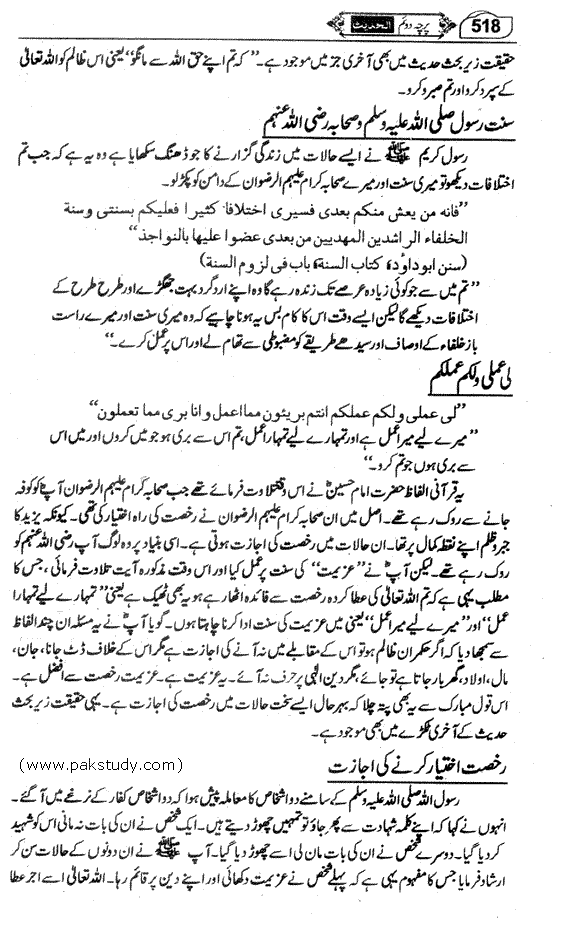 518
الحدیث
پرچہ دوئم
حقیقت زیر بحث حدیث میں بھی آخری جز میں موجود ہے۔ ”کہ تم اپنے حق اللہ سے مانگو“ یعنی اس ظالم کو اللہ تعالیٰ
کے سپرد کرو اور تم صبر و کرو۔
سنت رسول صلی اللہ علیہ وسلم و صحابہ رضی اللہ عنہم
رسول کریم ﷺ نے ایسے حالات میں زندگی گزارنے کا جو ڈھنگ سکھایا ہے وہ یہ ہے کہ جب تم
اختلافات دیکھو تو میری سنت اور میرے صحابہ کرام علیہم الرضوان کے دامن کو پکڑ لو۔
”فانه من يعش منكم بعدى فسيرى اختلافا كثيرا فعليكم بسنتى وسنة
الخلفاء الراشدين المهديين من بعدى عضوا عليها بالنواجذ“
(سنن ابوداؤد، کتاب السنة، باب فی لزوم السنة)
”تم میں سے جو کوئی زیادہ عرصے تک زندہ رہے گا وہ اپنے ارد گرد بہت جھگڑے اور طرح طرح کے
اختلافات دیکھے گا لیکن ایسے وقت اس کا کام بس یہ ہونا چاہیے کہ وہ میری سنت اور میرے راست
باز خلفاء کے اوصاف اور سیدھے طریقے کو مضبوطی سے تھام لے اور اس پر عمل کرے۔“
لی عملی ولکم عملکم
”لى عملى ولكم عملكم انتم بريئون مما اعمل وانا برى مما تعملون“
”میرے لیے میرا عمل ہے اور تمہارے لیے تمہارا عمل، تم اس سے بری ہو جو میں کروں اور میں اس
سے بری ہوں جو تم کرو۔“
یہ قرآنی الفاظ حضرت امام حسینؓ نے اس وقت تلاوت فرمائے تھے جب صحابہ کرام علیہم الرضوان آپؓ کو کوفہ
جانے سے روک رہے تھے۔ اصل میں ان صحابہ کرام علیہم الرضوان نے رخصت کی راہ اختیار کی تھی۔ کیونکہ یزید کا
جبر و ظلم اپنے نقطہ کمال پر تھا۔ ان حالات میں رخصت کی اجازت ہوتی ہے۔ اسی بنیاد پر وہ لوگ آپ رضی اللہ عنہم کو
روک رہے تھے۔ لیکن آپؓ نے ”عزیمت“ کی سنت پر عمل کیا اور اس وقت مذکورہ آیت تلاوت فرمائی، جس کا
مطلب یہی ہے کہ تم اللہ تعالیٰ کی عطا کردہ رخصت سے فائدہ اٹھا رہے ہو یہ بھی ٹھیک ہے یعنی ”تمہارے لیے تمہارا
عمل“ اور ”میرے لیے میرا عمل“ یعنی میں عزیمت کی سنت ادا کرنا چاہتا ہوں۔ گویا آپؓ نے یہ مسئلہ ان چند الفاظ
سے سمجھا دیا کہ اگر حکمران ظالم ہو تو اس کے مقابلے میں نہ آنے کی اجازت ہے مگر اس کے خلاف ڈٹ جانا، جان،
مال، اولاد، گھربار جاتا ہے تو جائے، مگر دین الٰہی پر حرف نہ آئے۔ یہ عزیمت ہے۔ عزیمت رخصت سے افضل ہے۔
اس قول مبارک سے یہ بھی پتہ چلا کہ بہرحال ایسے سخت حالات میں رخصت کی اجازت ہے۔ یہی حقیقت زیر بحث
حدیث کے آخری ٹکڑے میں بھی موجود ہے۔
(www.pakstudy.com)
رخصت اختیار کرنے کی اجازت
رسول اللہ صلی اللہ علیہ وسلم کے سامنے دو اشخاص کا معاملہ پیش ہوا کہ دو اشخاص کفار کے نرغے میں آ گئے۔
انہوں نے کہا کہ اپنے کلمہ شہادت سے پھر جاؤ تو تمہیں چھوڑ دیتے ہیں۔ ایک شخص نے ان کی بات نہ مانی اس کو شہید
کر دیا گیا۔ دوسرے شخص نے ان کی بات مان لی اسے چھوڑ دیا گیا۔ آپ ﷺ نے ان دونوں کے حالات سن کر
ارشاد فرمایا جس کا مفہوم یہی ہے کہ پہلے شخص نے عزیمت دکھائی اور اپنے دین پر قائم رہا۔ اللہ تعالیٰ اسے اجر عطا